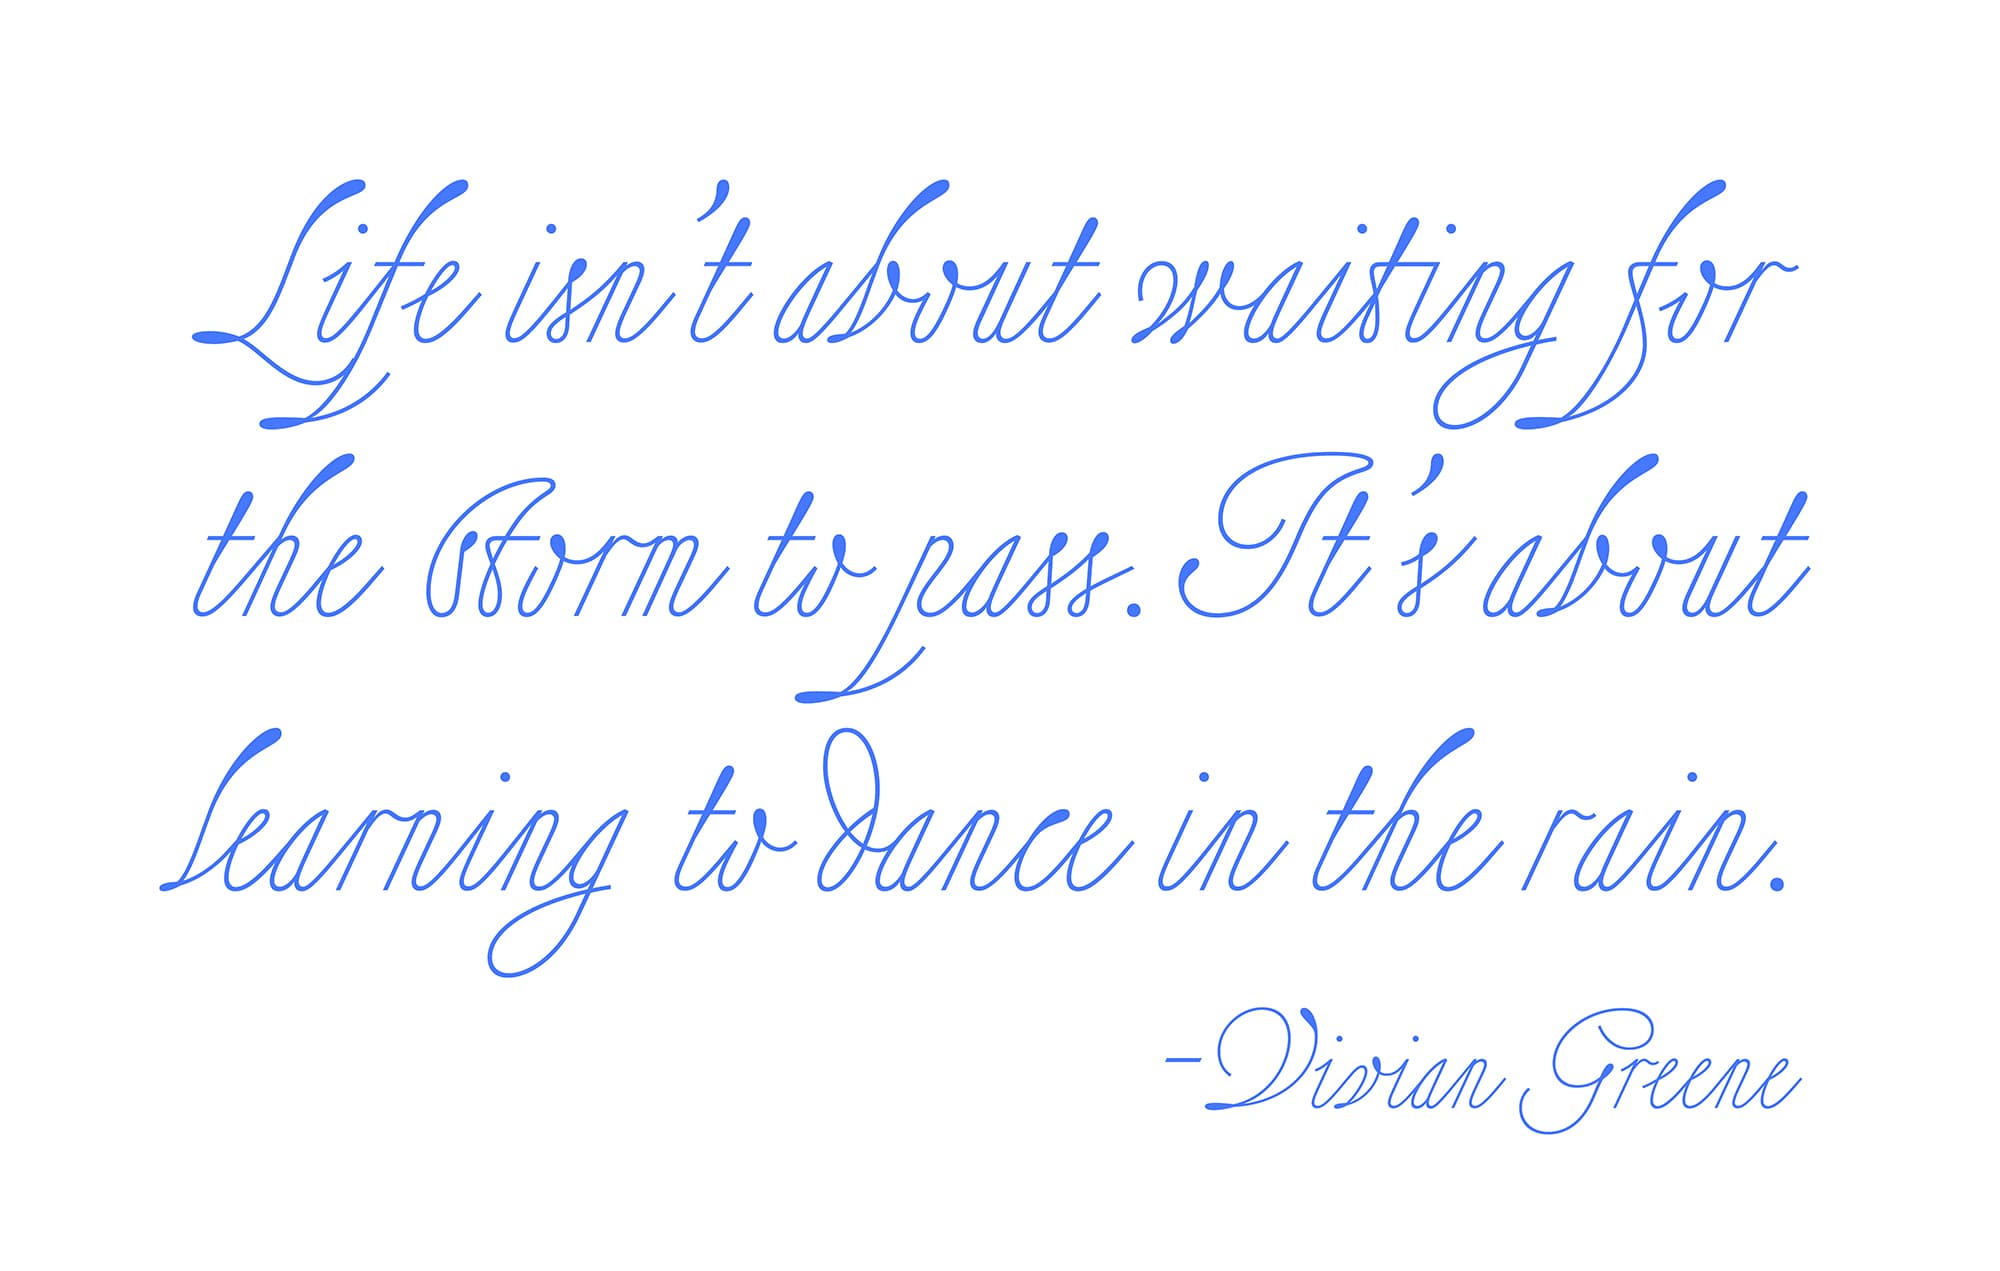 Life isn't about waiting for
the storm to pass. It's about
learning to dance in the rain.
-Vivian Greene